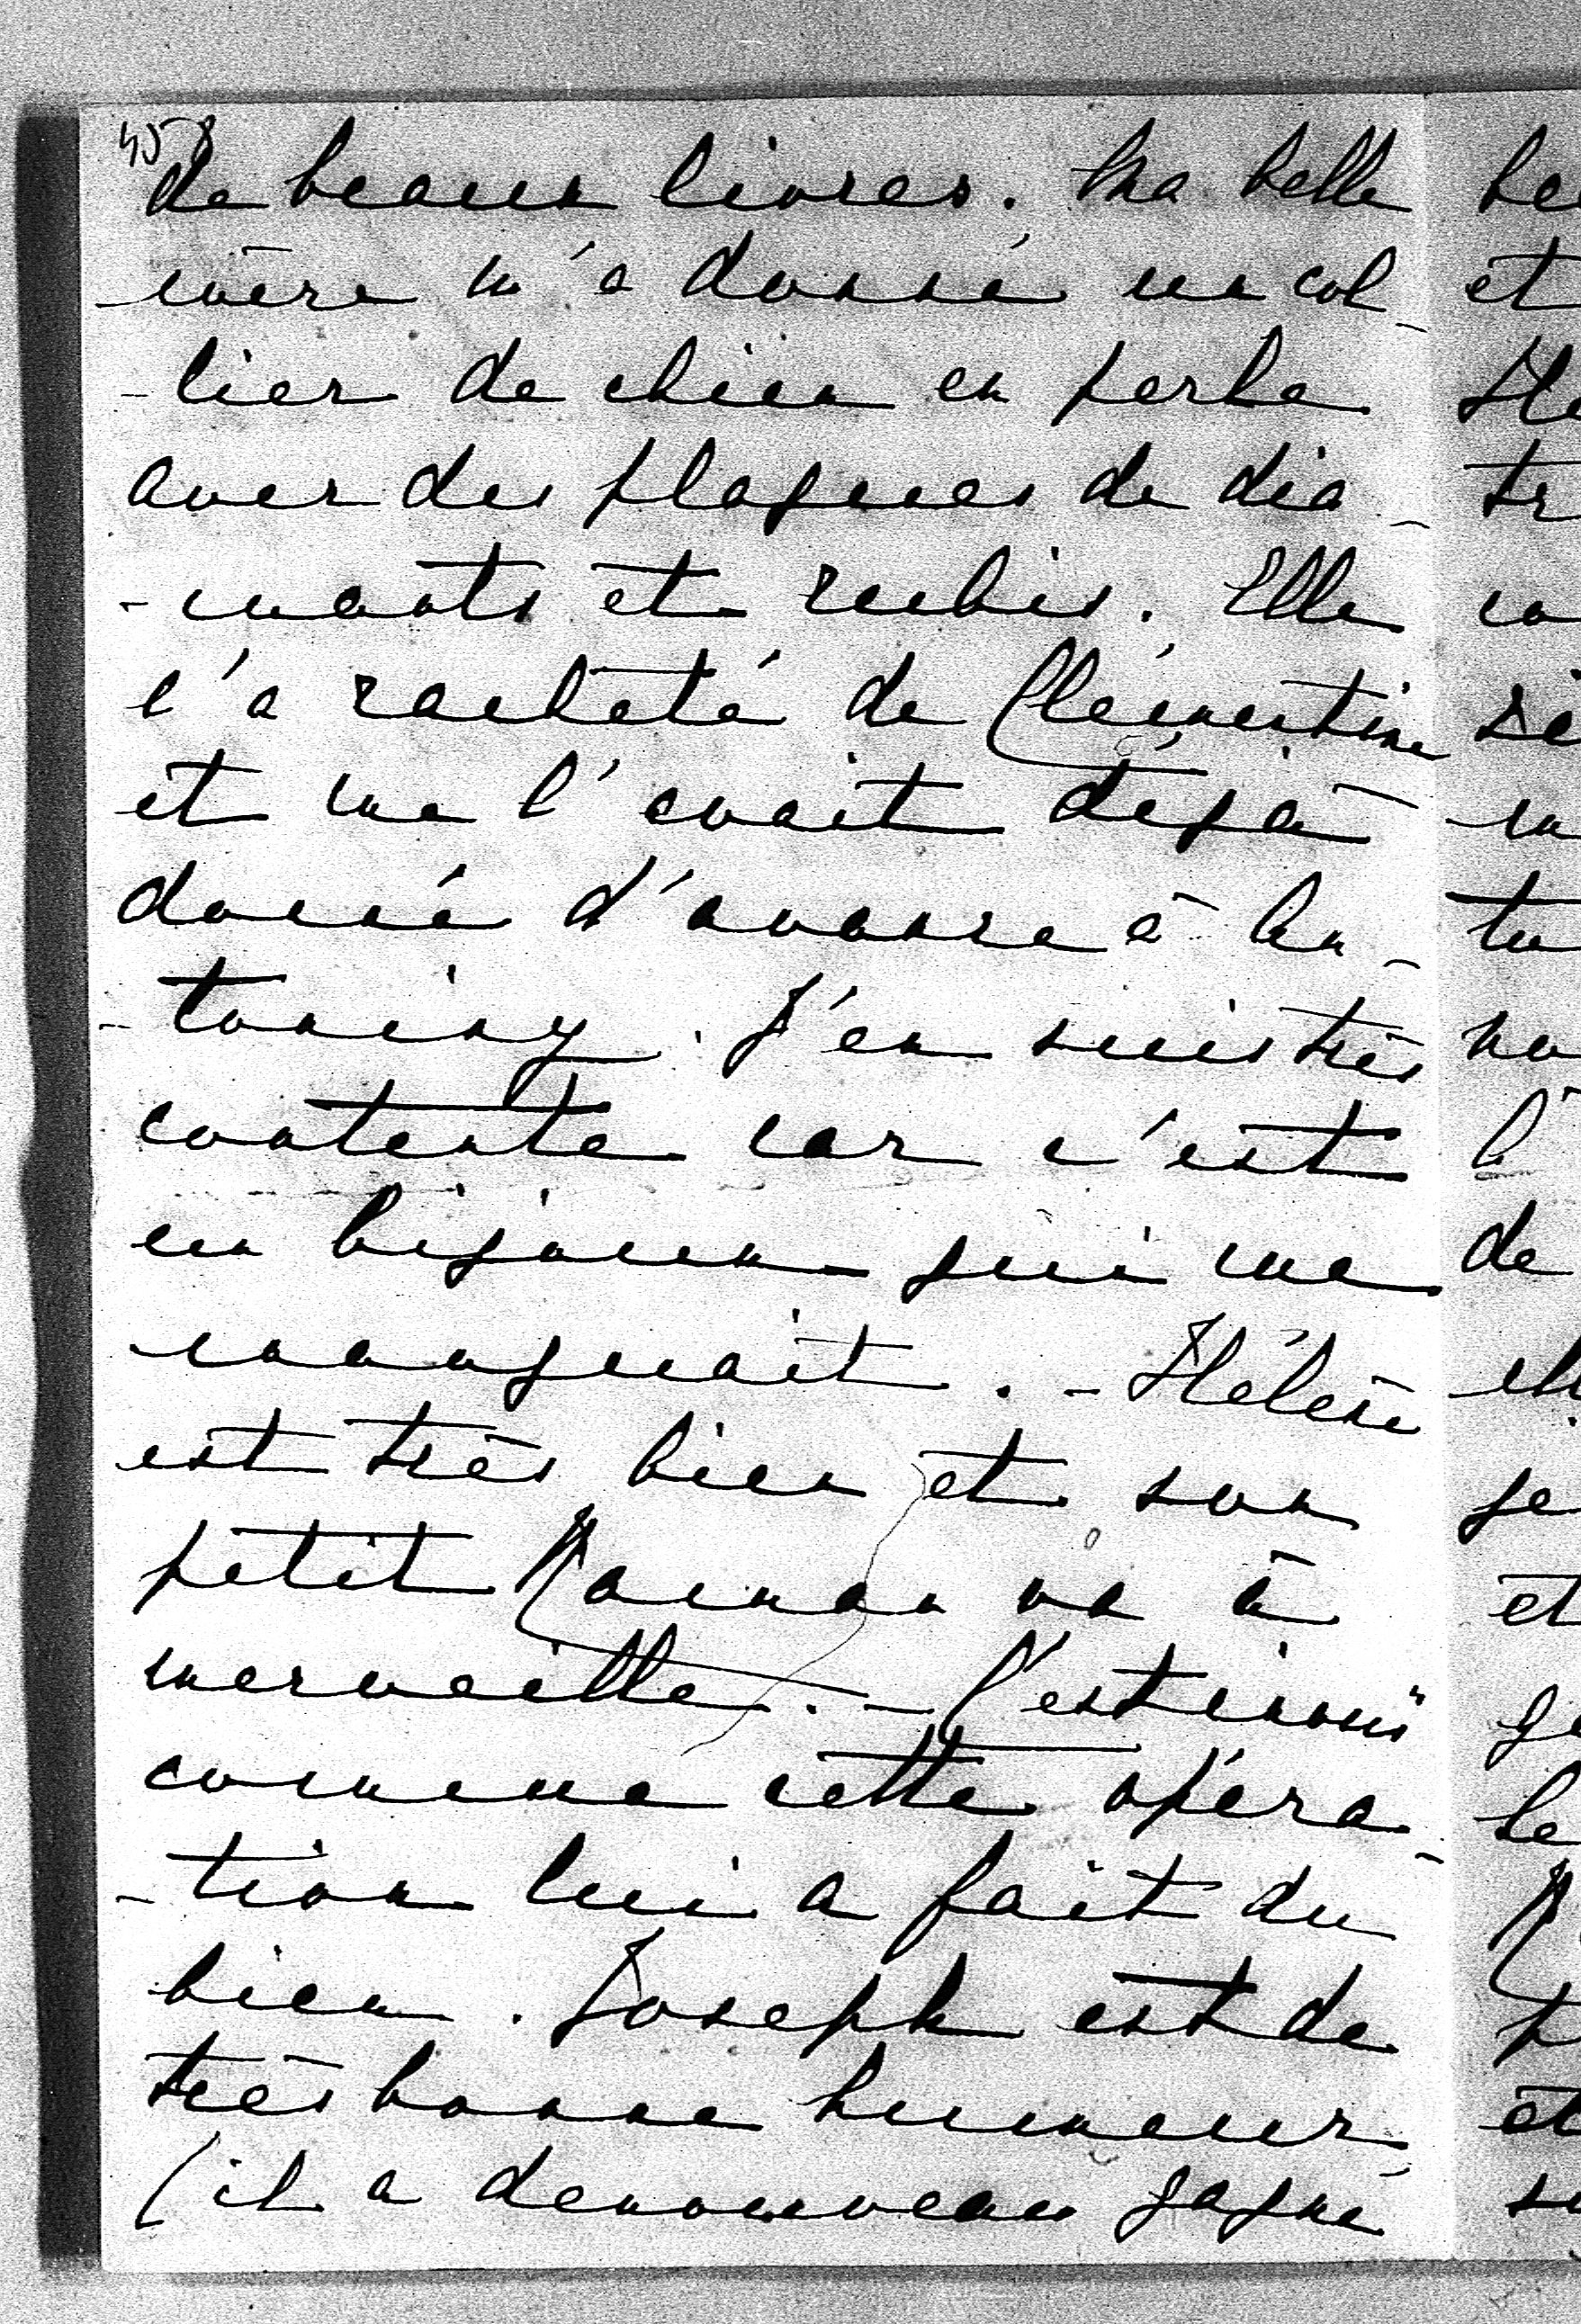 458
de beaux livres. Ma belle
mère m'a donné un col-
-lier de chien en perle
avec des plaques de dia-
-mants et rubis. Elle
l'a racheté de Clémentine
et me l'avait déjà
donné d'avance à An-
-toniny. J'en suis très
contente car c'est
un bijoux qui me
manquait. - Hélène
est très bien et son
petit Roman va à
merveille. - C'est inouï
comme cette opéra-
-tion lui a fait du
bien. Joseph est de
très bonne humeur
(il a denouveau gagné
et
de
et
et